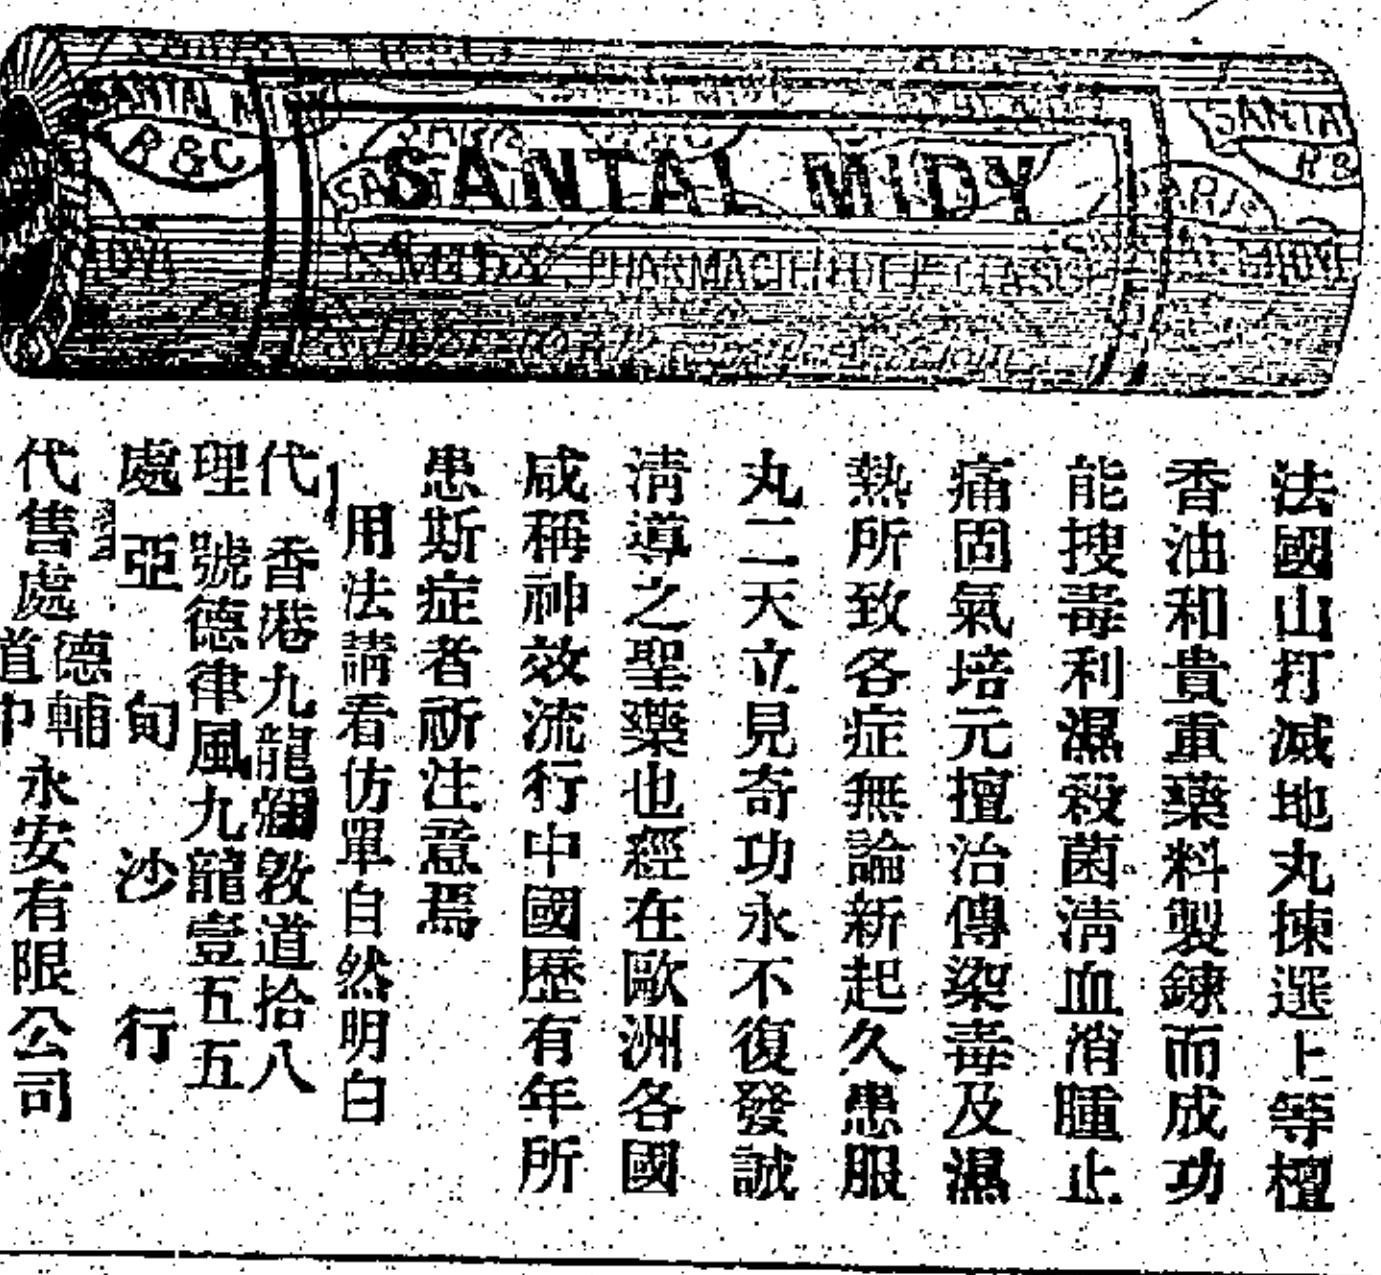 SANTAL MIDY
R&C
SANTAL MIDY
SANTA
R&
PHARMACIE
法國山打滅地丸揀選上等檀
香油和貴重藥料製鍊而成功
能搜毒利濕殺菌清血消腫止
痛固氣培元擅治傳染毒及濕
熱所致各症無論新起久患服
丸二天立見奇功永不復發誠
淸導之聖藥也經在歐洲各國
咸稱神效流行中國歷有年所
患斯症者祈注意焉
用法請看仿單自然明白
代理處
香港九龍彌敦道拾八
號德律風九龍壹五五
亞旬沙行
代售處
德輔
道中
永安有限公司